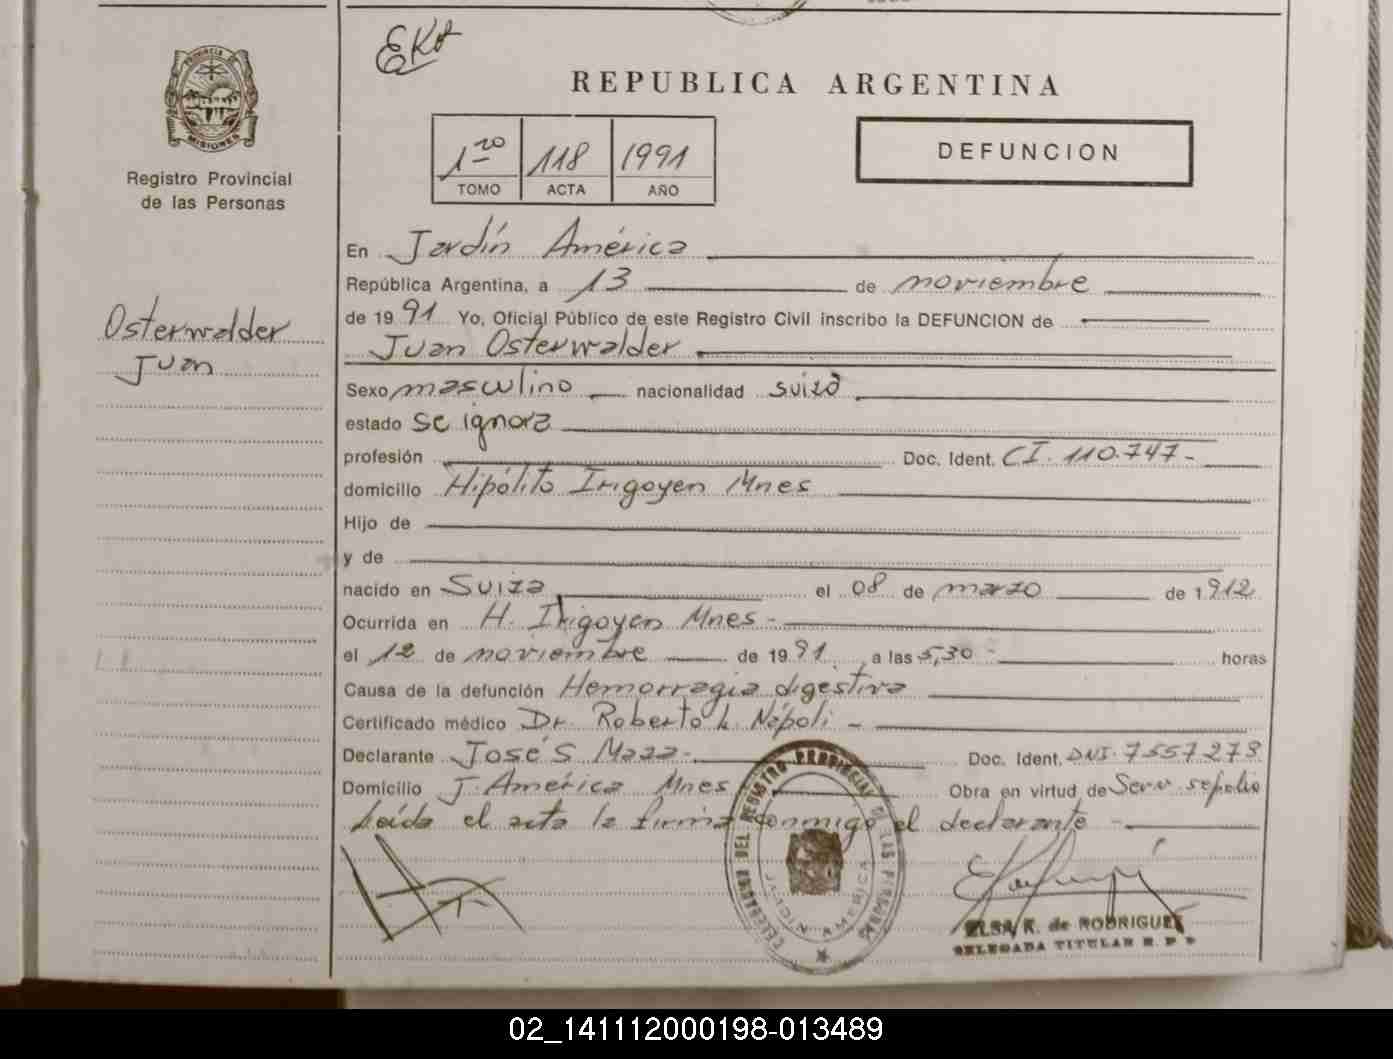 EKA
PROVINCIA DE
MISIONES
Registro Provincial
de las Personas
REPUBLICA ARGENTINA
1ro 118 1991
TOMO ACTA AÑO
DEFUNCION
En Jardín América
República Argentina, a 13 de noviembre
de 1991 Yo, Oficial Público de este Registro Civil inscribo la DEFUNCION de
Juan Osterwalder
Osterwalder
Juan
Sexo masculino nacionalidad suiza
estado se ignora
profesión Doc. Ident. CI. 110.747-
domicilio Hipólito Irigoyen Mnes
Hijo de
y de
nacido en Suiza el 08 de marzo de 1912
Ocurrida en H. Irigoyen Mnes -
el 12 de noviembre de 1991 a las 5,30 - horas
Causa de la defunción Hemorragia digestiva
Certificado médico Dr. Roberto L. Nápoli -
Declarante José S Maza - Doc. Ident. DNI. 7557273
Domicilio J. América Mnes Obra en virtud de Serv. sepelio
Leída el acta la firma conmigo el declarante -
DELEGADA DEL REGISTRO PROVINCIAL DE LAS PERSONAS
JARDIN AMERICA
ELSA K. de RODRIGUEZ
DELEGADA TITULAR R. P. P
02_141112000198-013489